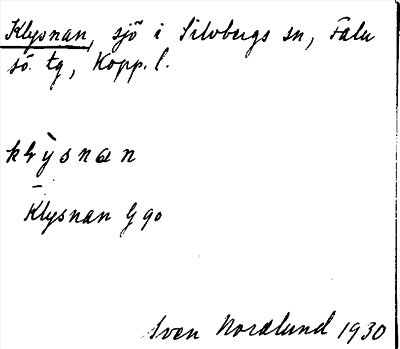 Klysnan, sjö i Silvbergs sn, Falu
sö. tg, Kopp. l.
klỳsnan
Klysnan G 90
Sven Norelund 1930